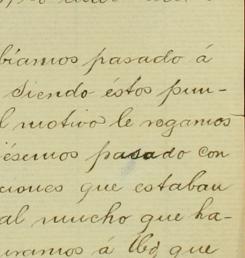 bíamos pasado á
siendo éstos pun-
l motivo le rogamos
iésemos pasado con
ciones que estaban
al mucho que ha-
uramos á Vd que